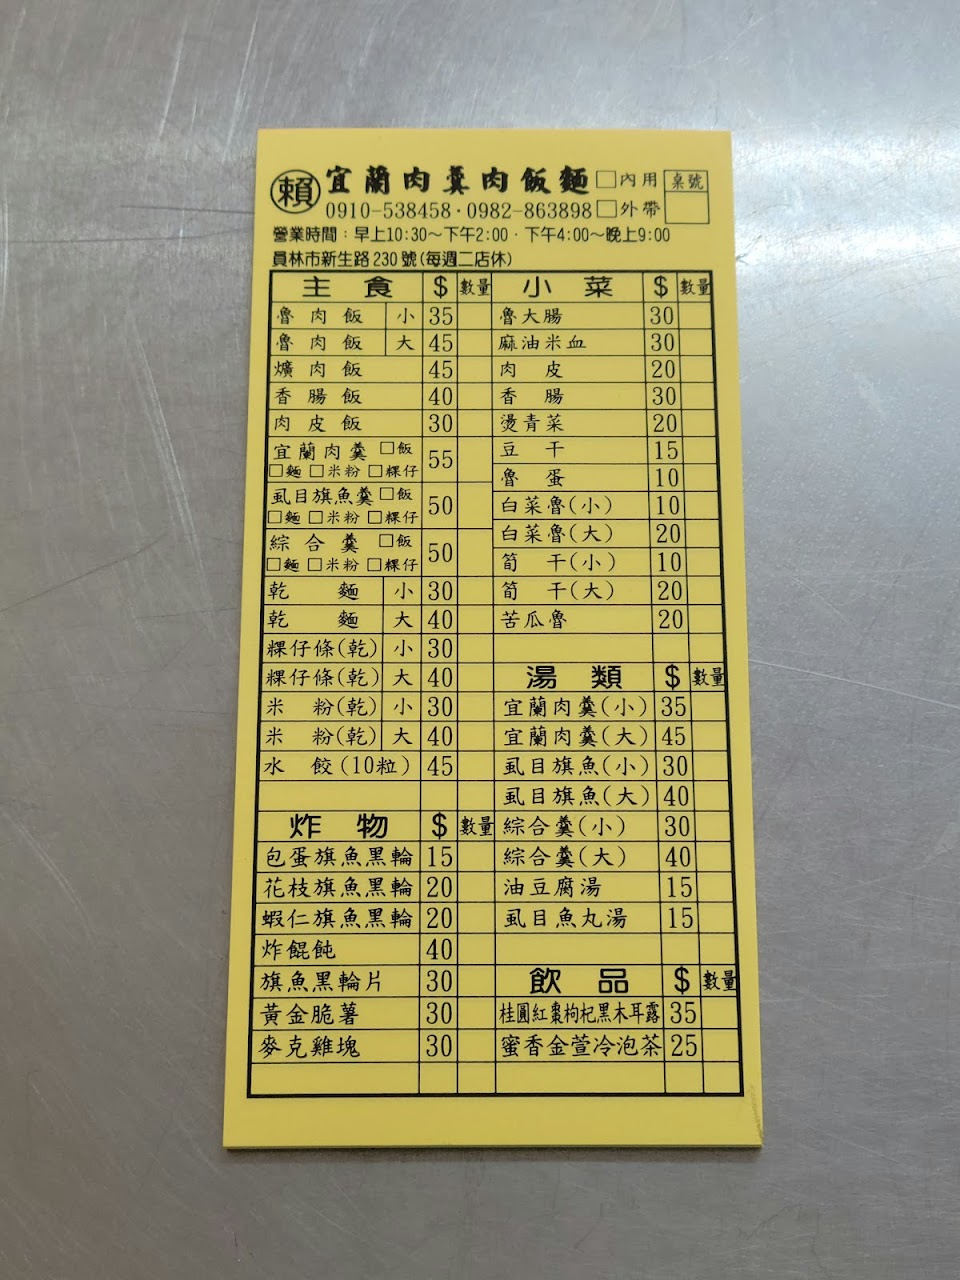 賴 宜蘭肉羹肉飯麵 □內用 桌號
0910-538458·0982-863898 □外帶
營業時間：早上10:30～下午2:00·下午4:00～晚上9:00
員林市新生路230號(每週二店休)
主食 $ 數量
魯肉飯 小 35
魯肉飯 大 45
爌肉飯 45
香腸飯 40
肉皮飯 30
宜蘭肉羹 □飯 55
□麵 □米粉 □粿仔
虱目旗魚羹 □飯 50
□麵 □米粉 □粿仔
綜合羹 □飯 50
□麵 □米粉 □粿仔
乾麵 小 30
乾麵 大 40
粿仔條(乾) 小 30
粿仔條(乾) 大 40
米粉(乾) 小 30
米粉(乾) 大 40
水餃(10粒) 45
炸物 $ 數量
包蛋旗魚黑輪 15
花枝旗魚黑輪 20
蝦仁旗魚黑輪 20
炸餛飩 40
旗魚黑輪片 30
黃金脆薯 30
麥克雞塊 30
小菜 $ 數量
魯大腸 30
麻油米血 30
肉皮 20
香腸 30
燙青菜 20
豆干 15
魯蛋 10
白菜魯(小) 10
白菜魯(大) 20
筍干(小) 10
筍干(大) 20
苦瓜魯 20
湯類 $ 數量
宜蘭肉羹(小) 35
宜蘭肉羹(大) 45
虱目旗魚(小) 30
虱目旗魚(大) 40
綜合羹(小) 30
綜合羹(大) 40
油豆腐湯 15
虱目魚丸湯 15
飲品 $ 數量
桂圓紅棗枸杞黑木耳露 35
蜜香金萱冷泡茶 25